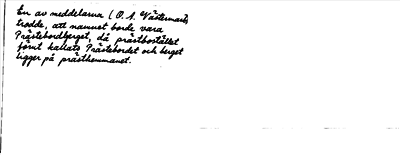 En av meddelarna (O. A. Västermark)
trodde, att namnet borde vara
Prästebordberget, då prästbostället
förut kallats Prästebordet och berget
ligger på prästhemmanet.